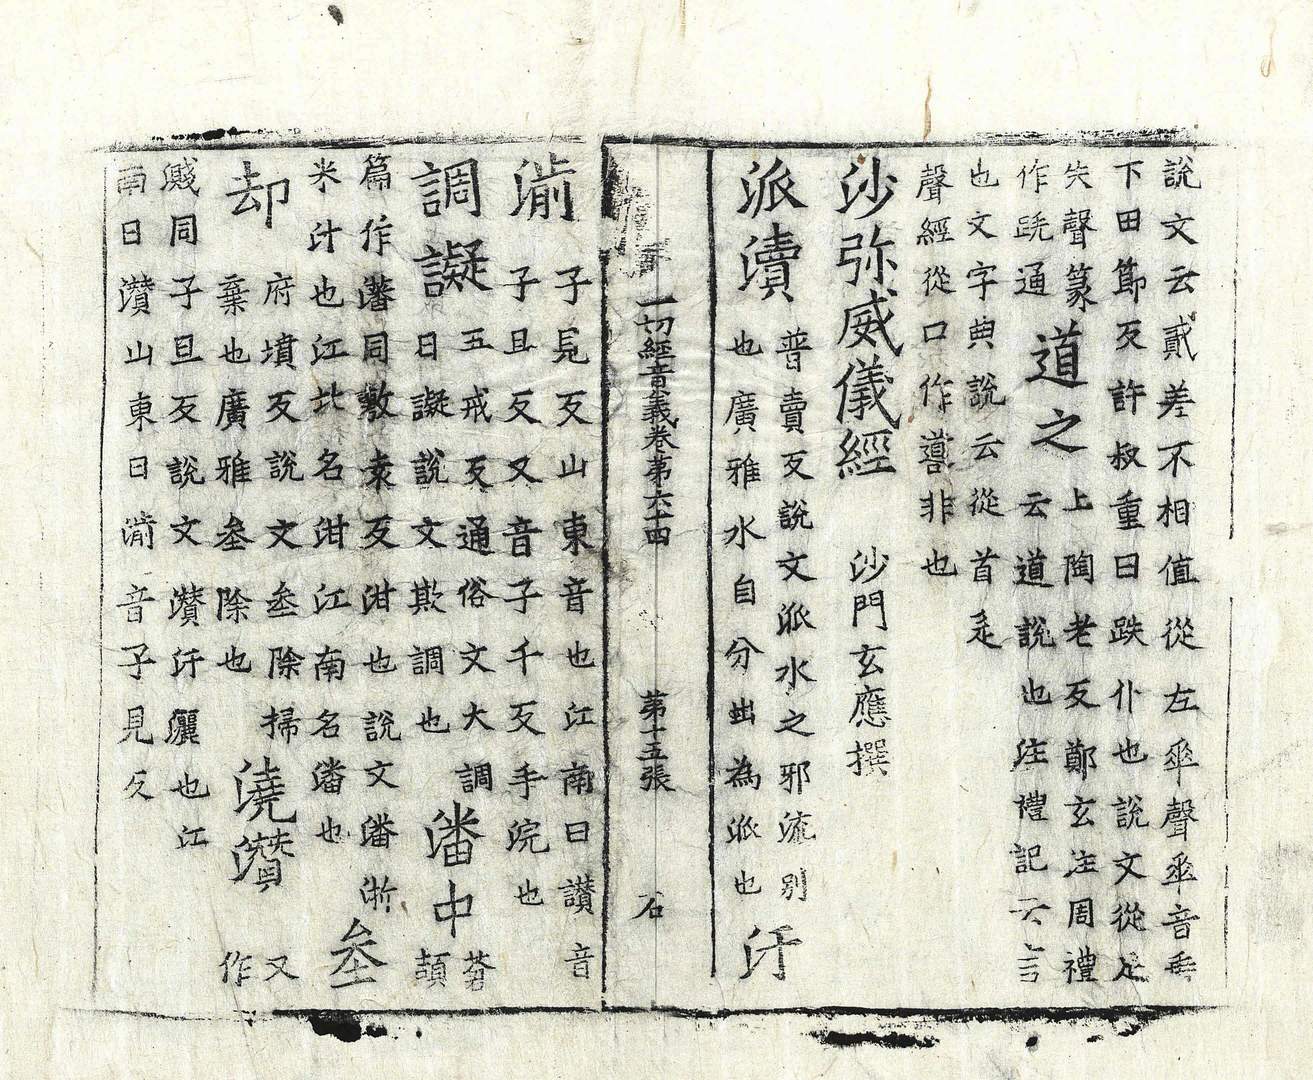 說文云貳差不相值從左𠂹聲𠂹音垂
下田節反許叔重曰跌仆也說文從足
失聲篆道之上陶老反鄭玄注周禮
作䟢通云道說也注禮記云言
也文字典說云從首辵
聲經從口作噵非也
沙弥威儀經 沙門玄應撰
派瀆普賣反說文派水之邪流別
也廣雅水自分出為派也汙
一切經音義卷第六十四 第十五張 石
湔子見反山東音也江南曰讃音
子旦反又音子千反手浣也
調譺五戒反通俗文大調
曰譺說文欺調也潘中蒼頡
篇作潘同敷袁反泔也說文潘淅
米汁也江北名泔江南名潘也坌
却府墳反說文坌除掃
棄也廣雅坌除也澆灒又作
濺同子旦反說文灒汙灑也江
南曰灒山東曰湔音子見反